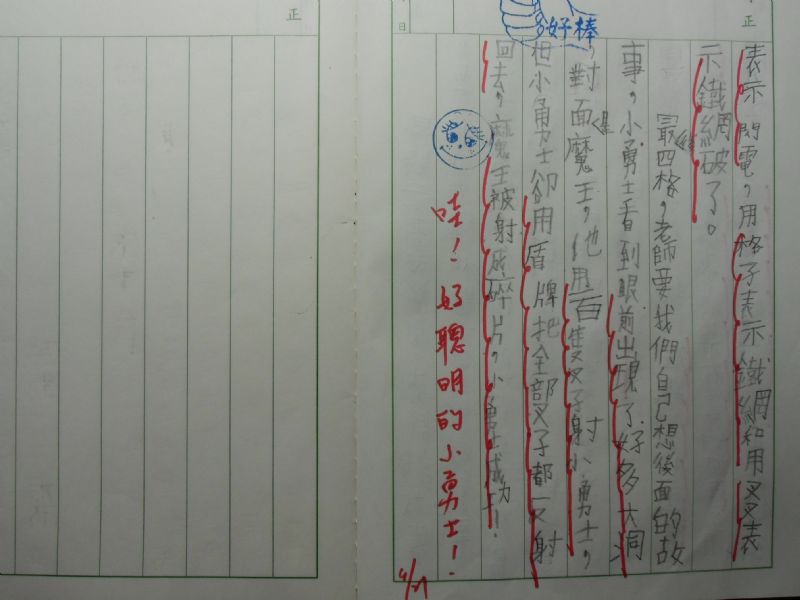 表示閃電，用格子表示鐵網和用叉叉表
示鐵網破了。
最四格，老師要我們自己想後面的故
事，小勇士看到眼前出現了好多大洞
，對面魔王，他用百隻叉子射小勇士，
但小勇士卻用盾牌把全部叉子都反射
回去，魔王被射成碎片，小勇士成功！
哇！好聰明的小勇士！
4/21
好棒
正
正
日